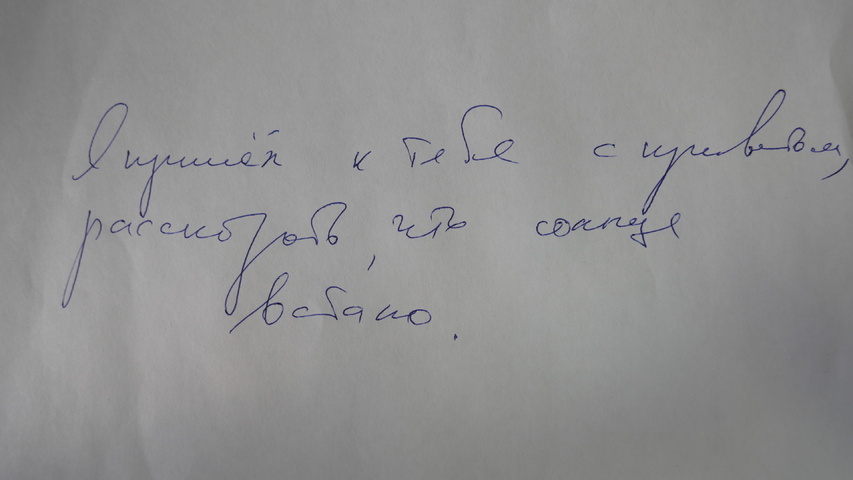 Я пришёл к тебе с приветом,
рассказать, что солнце
встало.